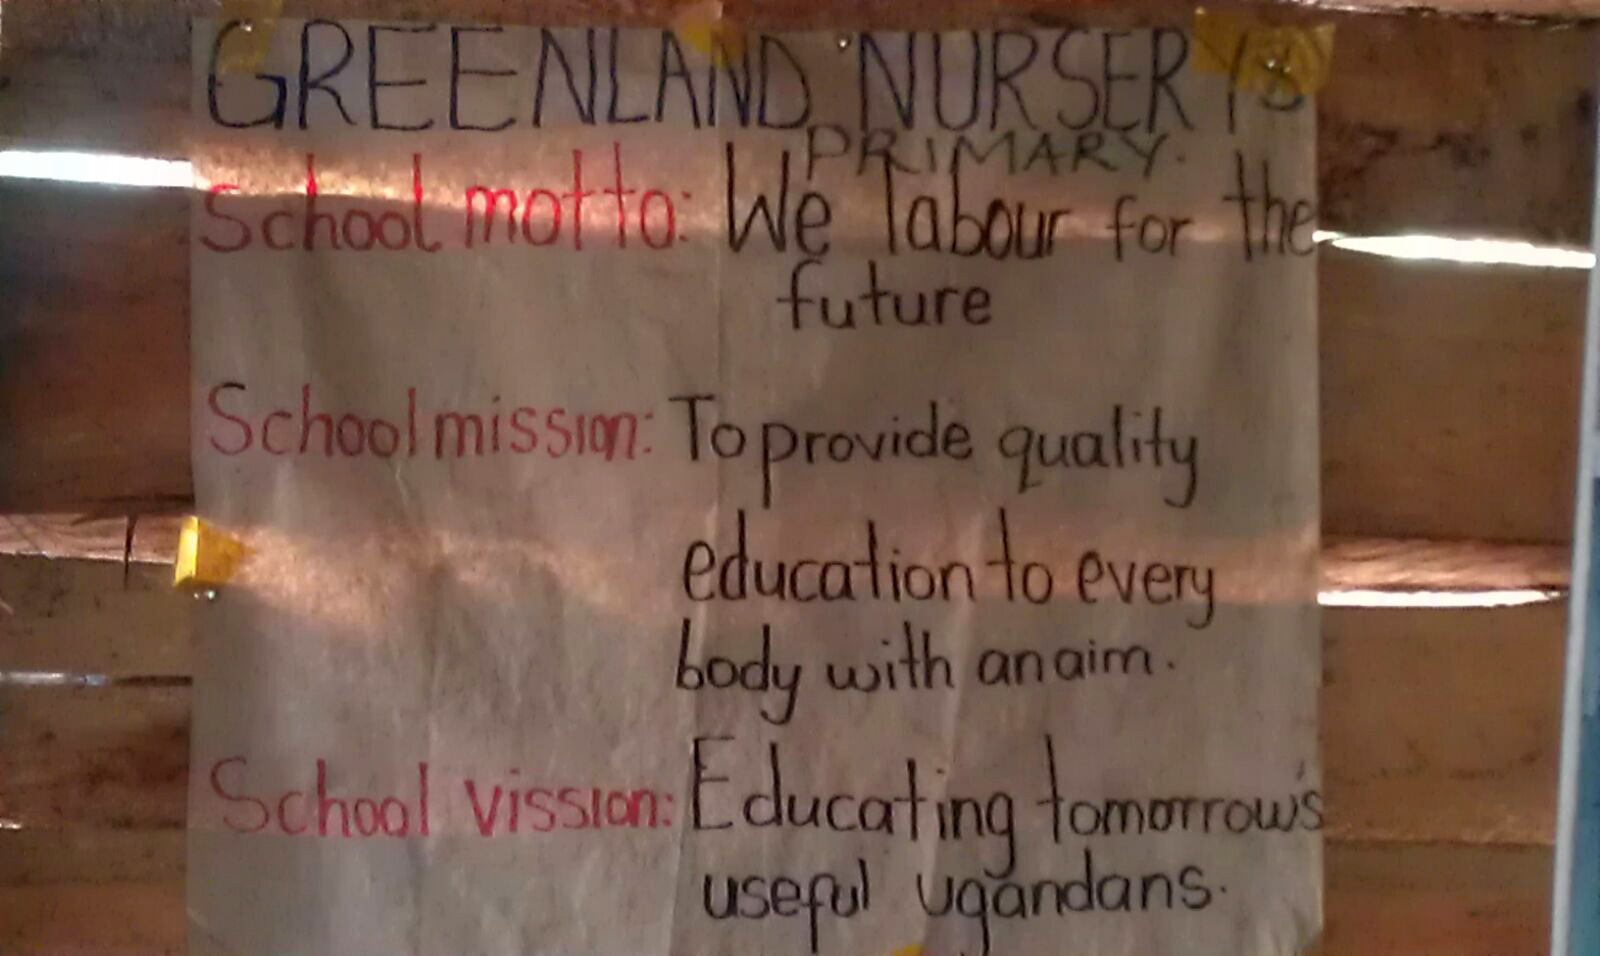 GREENLAND NURSERY &
PRIMARY.
School motto: We labour for the
future
School mission: To provide quality
education to every
body with an aim.
School vission: Educating tomorrow's
useful ugandans.